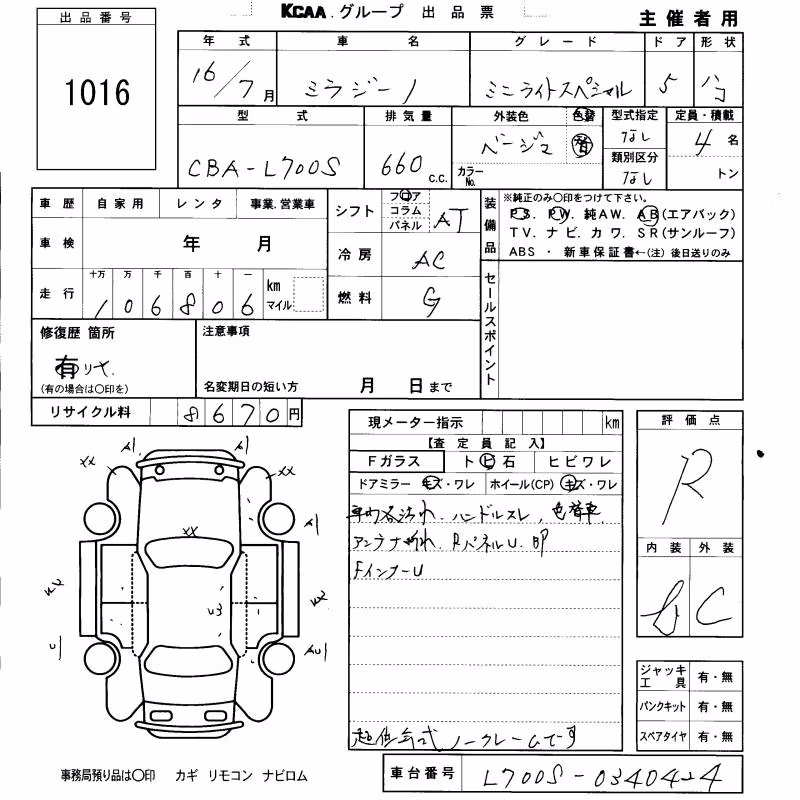 KCAA.グループ 出品票
主催者用
出品番号
1016
年式 車名 グレード ドア 形状
16/7月 ミラジーノ ミニライトスペシャル 5 ハコ
型式 排気量 外装色 色替 型式指定 定員・積載
CBA-L700S 660 c.c. ベージュ なし 4名
カラーNo. 類別区分 トン
なし
車歴 自家用 レンタ 事業.営業車
シフト フロア コラム パネル AT
装備品 ※純正のみ〇印をつけて下さい。
PS. PW. 純AW. AB(エアバック)
TV. ナビ. カワ. SR(サンルーフ)
ABS ・ 新車保証書←(注) 後日送りのみ
車検 年 月
冷房 AC
走行 十万 万 千 百 十 一 km マイル
1 0 6 8 0 6
燃料 G
セールスポイント
修復歴 箇所 注意事項
有
(有の場合は〇印を)
名変期日の短い方 月 日まで
リサイクル料 8670円
現メーター指示 km
【査定員記入】
Fガラス トビ石 ヒビワレ
ドアミラー キズ・ワレ ホイール(CP) キズ・ワレ
車内各汚れ、ハンドルスレ、色替車
アンテナ折れ、RパネルU、
FインナーU
超低年式 ノークレームです
評価点
R
内装 外装
C
ジャッキ工具 有・無
パンクキット 有・無
スペアタイヤ 有・無
A1 A1
XX XX
XX
A1
U3
AU
事務局預り品は〇印 カギ リモコン ナビロム
車台番号 L700S-0340424